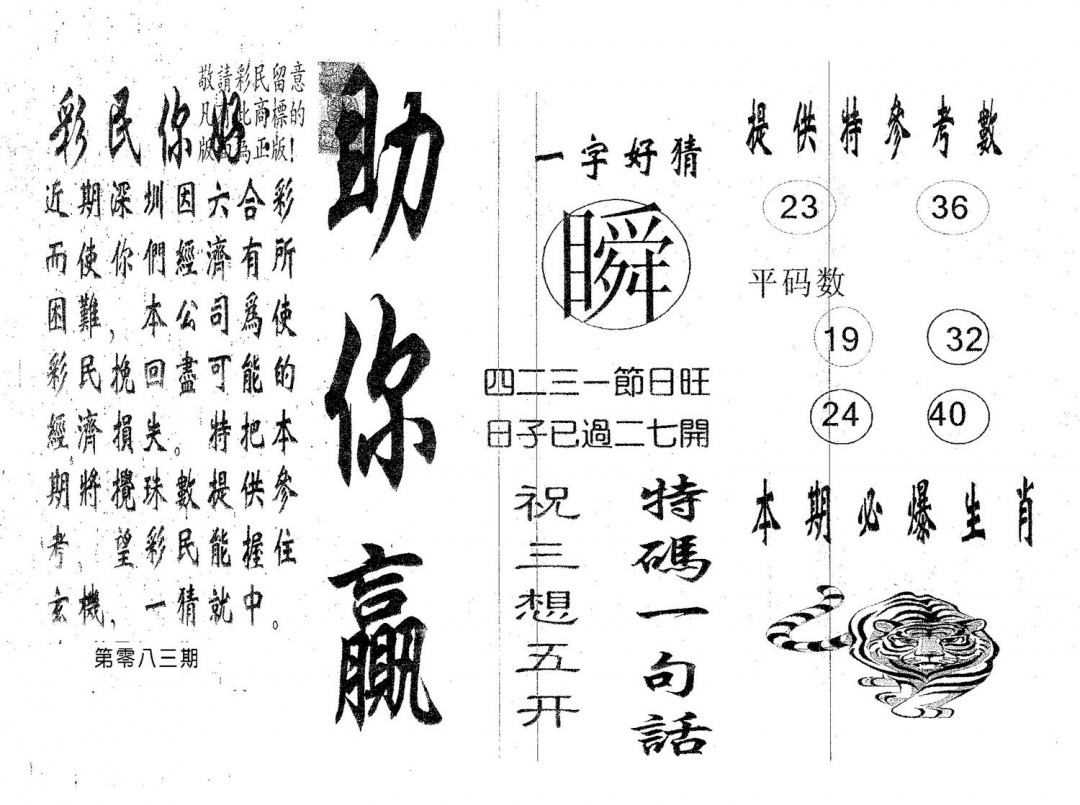 敬請彩民留意
凡 此商標的
版 為正版!
彩民你好
近期深圳因六合彩
而使你們經濟有所
困難,本公司爲使
彩民挽回盡可能的
經濟損失。特把本
期將攪珠數提供參
考,望彩民能握住
玄機,一猜就中。
第零八三期
助你贏
一字好猜
瞬
四二三一節日旺
日子已過二七開
特碼一句話
祝三想五开
提供特參考數
23 36
平码数
19 32
24 40
本期必爆生肖